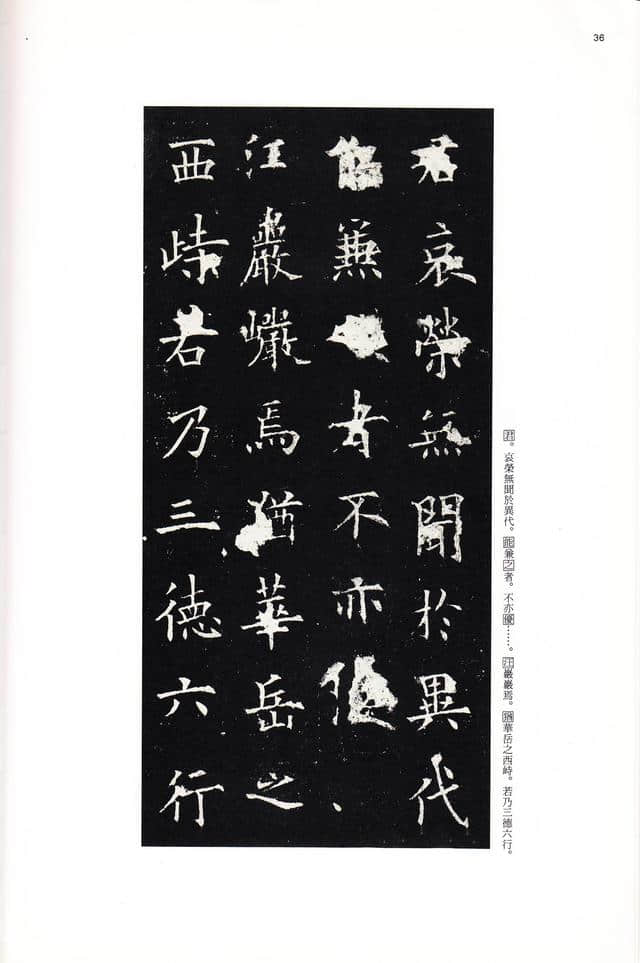 36
君哀榮無聞於異代
能兼者不亦優、
汪巖巖焉猶華岳之
西峙若乃三德六行
君。哀榮無聞於異代。能兼之者。不亦優……。汪巖巖焉。猶華岳之西峙。若乃三德六行。